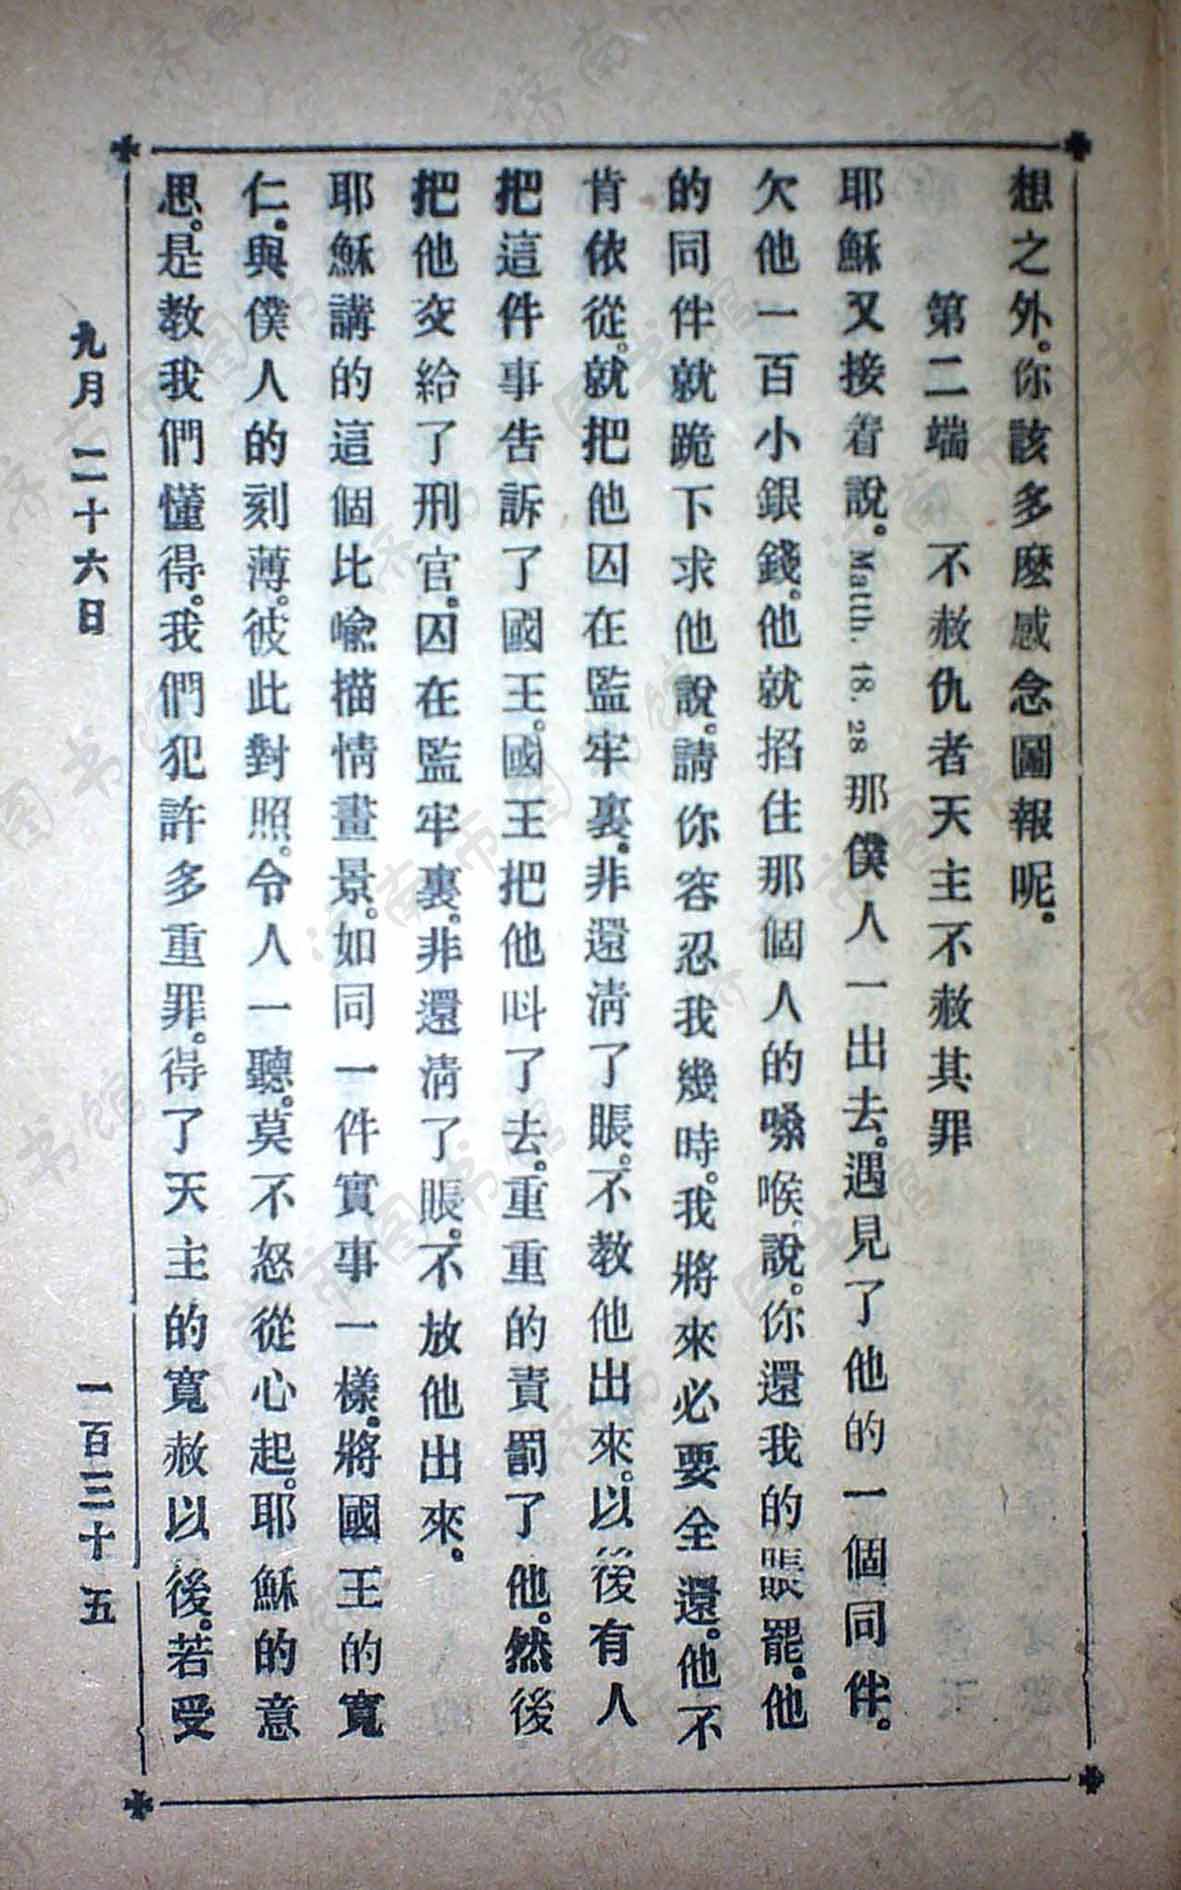 想之外。你該多麼感念圖報呢。
第二端　不赦仇者天主不赦其罪
耶穌又接着說。Matth. 18. 28 那僕人一出去。遇見了他的一個同伴。
欠他一百小銀錢。他就招住那個人的嗓喉說。你還我的賬罷。他
的同伴就跪下求他說。請你容忍我幾時。我將來必要全還。他不
肯依從。就把他囚在監牢裏。非還清了賬。不教他出來。以後有人
把這件事告訴了國王。國王把他叫了去。重重的責罰了他。然後
把他交給了刑官。囚在監牢裏。非還清了賬。不放他出來。
耶穌講的這個比喻描情畫景。如同一件實事一樣。將國王的寬
仁。與僕人的刻薄。彼此對照。令人一聽。莫不怒從心起。耶穌的意
思。是教我們懂得。我們犯許多重罪。得了天主的寬赦以後。若受
九月二十六日　一百三十五
济南市图书馆